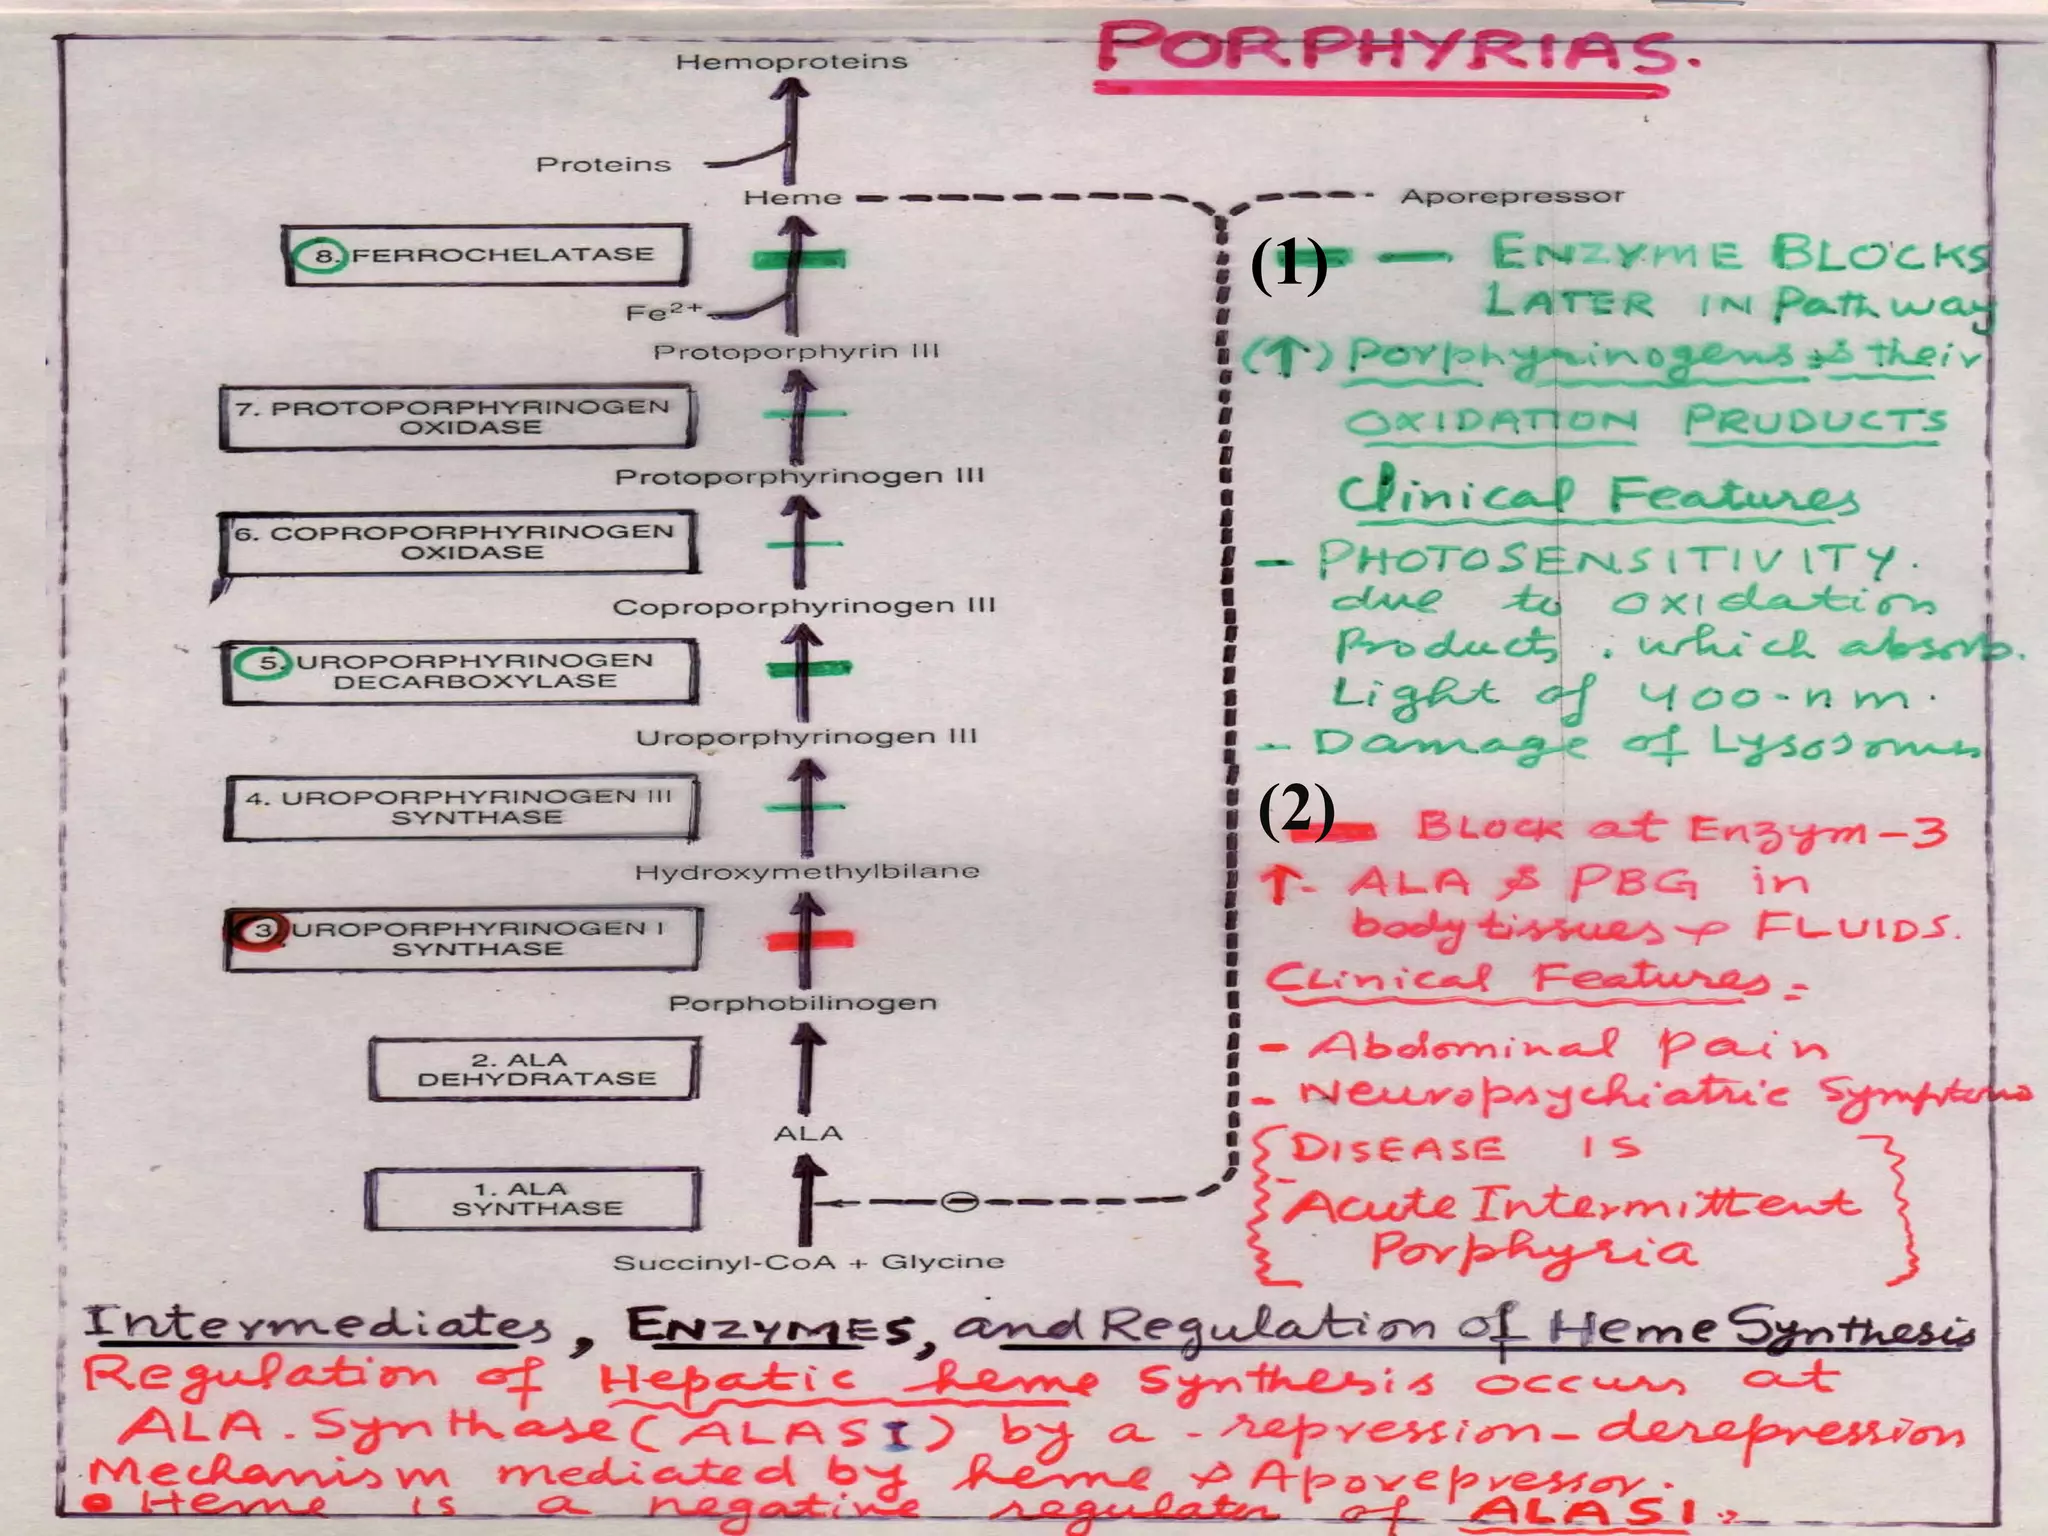 PORPHYRIAS.
Hemoproteins
Proteins
Heme
Aporepressor
8. FERROCHELATASE
Fe²⁺
Protoporphyrin III
7. PROTOPORPHYRINOGEN
OXIDASE
Protoporphyrinogen III
6. COPROPORPHYRINOGEN
OXIDASE
Coproporphyrinogen III
5. UROPORPHYRINOGEN
DECARBOXYLASE
Uroporphyrinogen III
4. UROPORPHYRINOGEN III
SYNTHASE
Hydroxymethylbilane
3. UROPORPHYRINOGEN I
SYNTHASE
Porphobilinogen
2. ALA
DEHYDRATASE
ALA
1. ALA
SYNTHASE
Succinyl-CoA + Glycine
(1) — ENZYME BLOCKS
LATER IN Pathway
(↑) Porphyrinogens & their
OXIDATION PRUDUCTS
Clinical Features
- PHOTOSENSITIVITY.
due to oxidation
Products, which absorb.
Light of 400-nm.
- Damage of Lysosomes
(2) Block at Enzym-3
↑- ALA & PBG in
body tissues & FLUIDS.
Clinical Features =
- Abdominal Pain
- Neuropsychiatric Symptoms
DISEASE IS
Acute Intermittent
Porphyria
Intermediates, ENZYMES, and Regulation of Heme Synthesis
Regulation of Hepatic heme Synthesis occurs at
ALA. Synthase (ALASI) by a - repression-derepression
Mechanism mediated by heme & Aporepressor.
• Heme is a negative regulator of ALASI.